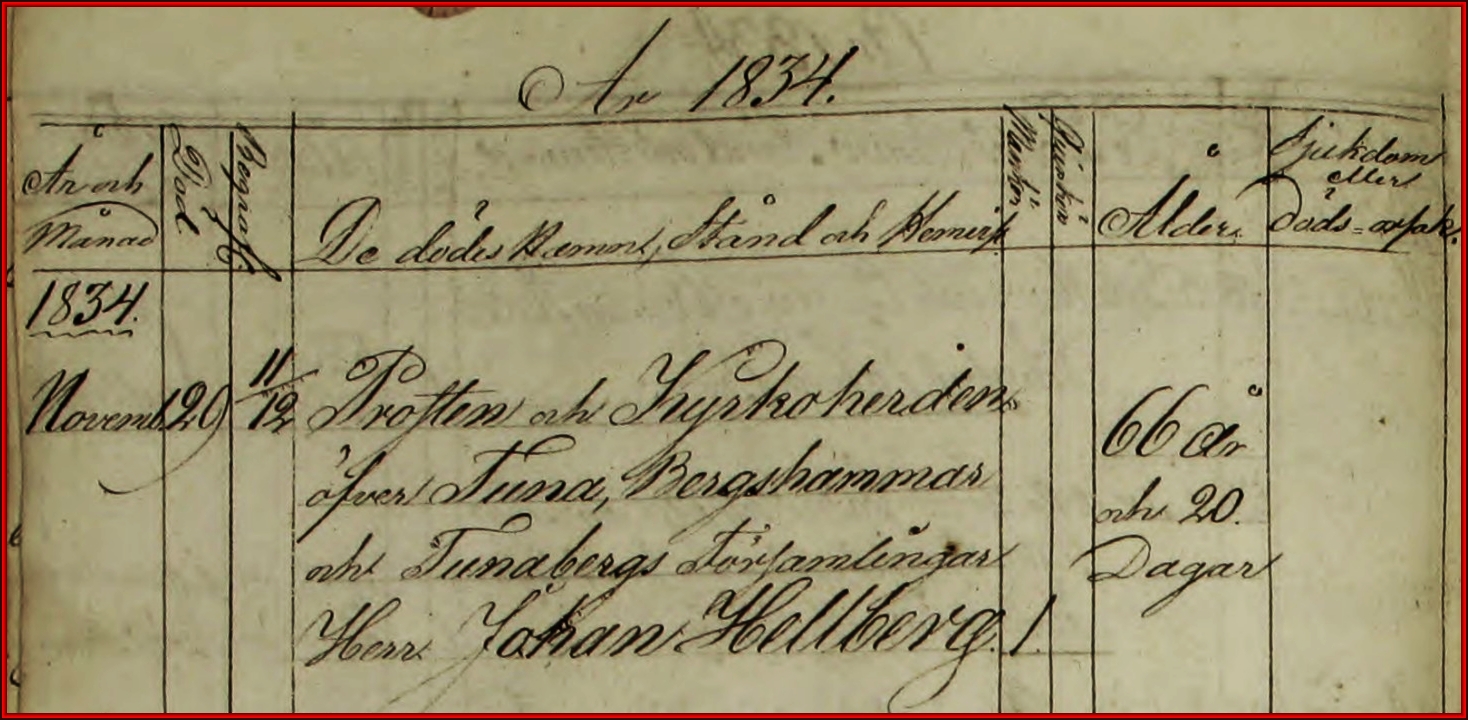 År 1834.
År och
Månad
Död
Begrafn.
De dödes Namn, Stånd och Hemvist
Mankön
Qvinkön
Ålder.
Sjukdom
eller
Döds=orsak.
1834.
Novemb. 29 11/12 Prosten och Kyrkoherden
öfver Tuna, Bergshammar
och Tunabergs Församlingar
Herr Johan Hellberg. 1.
66 år
och 20.
Dagar